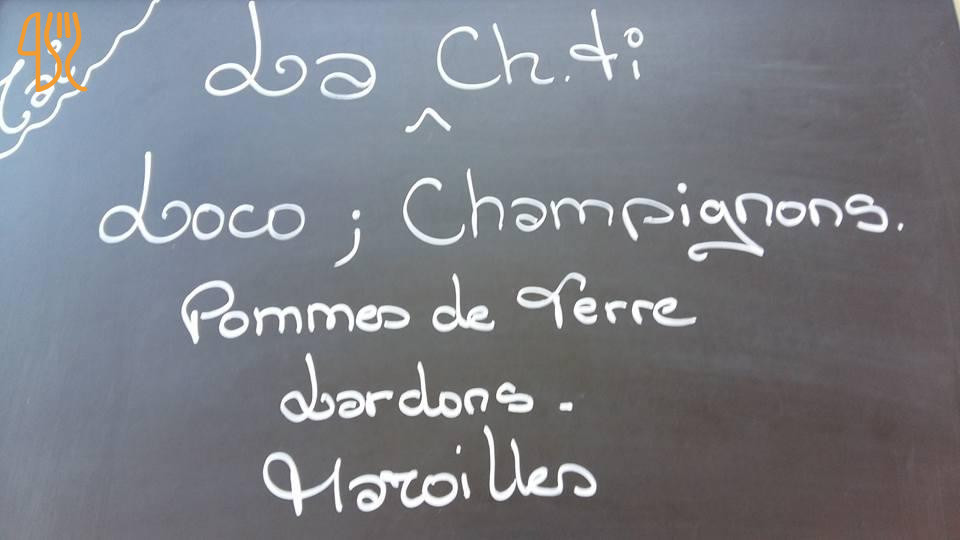 La Ch.ti
Loco ; Champignons.
Pommes de Terre
Lardons.
Maroilles